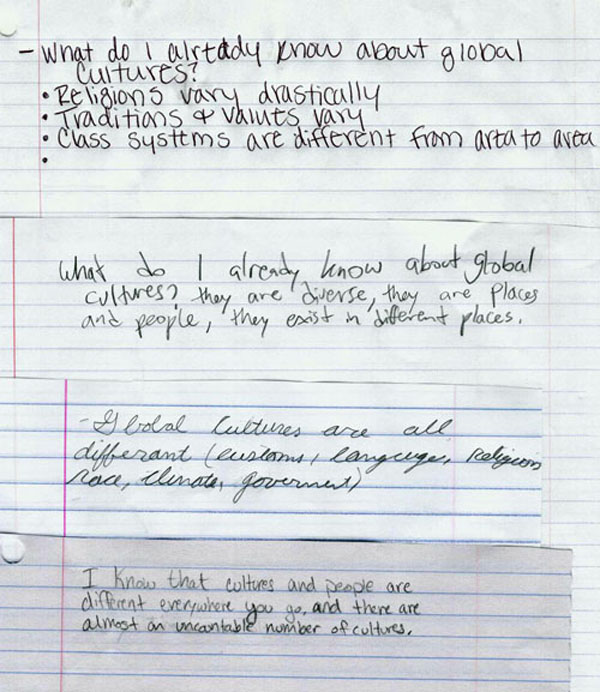 - What do I already know about global
cultures?
• Religions vary drastically
• Traditions & values vary
• Class systems are different from area to area
•
What do I already know about global
cultures? they are diverse, they are places
and people, they exist in different places.
- Global Cultures are all
differant (customs, language, Religion
race, climate, goverment)
I know that cultures and people are
different everywhere you go, and there are
almost an uncountable number of cultures.